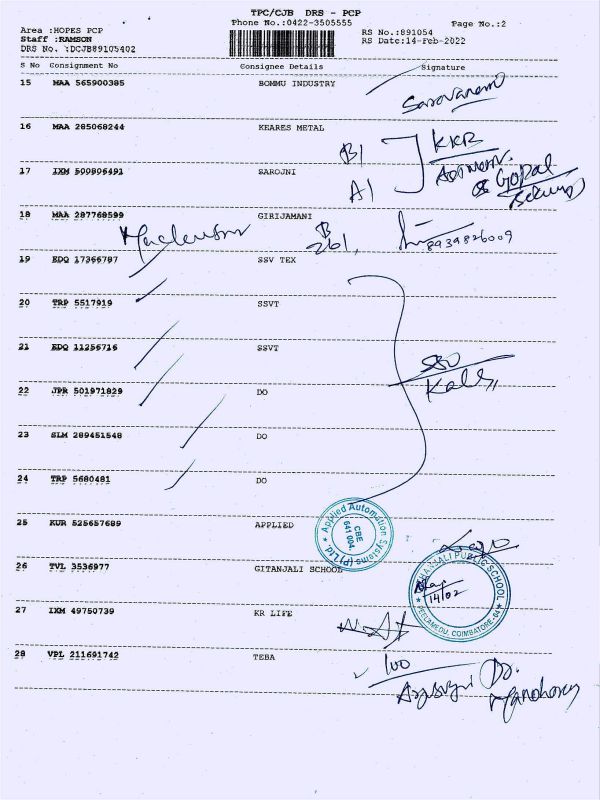 TPC/CJB DRS - PCP
Phone No.:0422-3505555
Page No.:2
Area :HOPES PCP
RS No.:891054
Staff :RAMSON
RS Date:14-Feb-2022
DRS No. :DCJB89105402
S No Consignment No Consignee Details Signature
15 MAA 565900385 BOMMU INDUSTRY
Saravanam
16 MAA 285068244 KEARES METAL
B1 KKB
17 IXM 500806491 SAROJNI
A1 Gopal
18 MAA 287768599 GIRIJAMANI
B
261, 8939826009
19 EDQ 17366787 SSV TEX
20 TRP 5517919 SSVT
21 EDQ 11256716 SSVT
22 JPR 501971829 DO
Kali
23 SLM 289451548 DO
24 TRP 5680481 DO
25 KUR 525657689 APPLIED
Applied Automation Systems (P) Ltd.
CBE
641 004.
26 TVL 3536977 GITANJALI SCHOOL
PUBLIC SCHOOL
PEELAMEDU, COIMBATORE-04
14/02
27 IXM 49750739 KR LIFE
28 VPL 211691742 TEBA
100
Dr.
Manohary